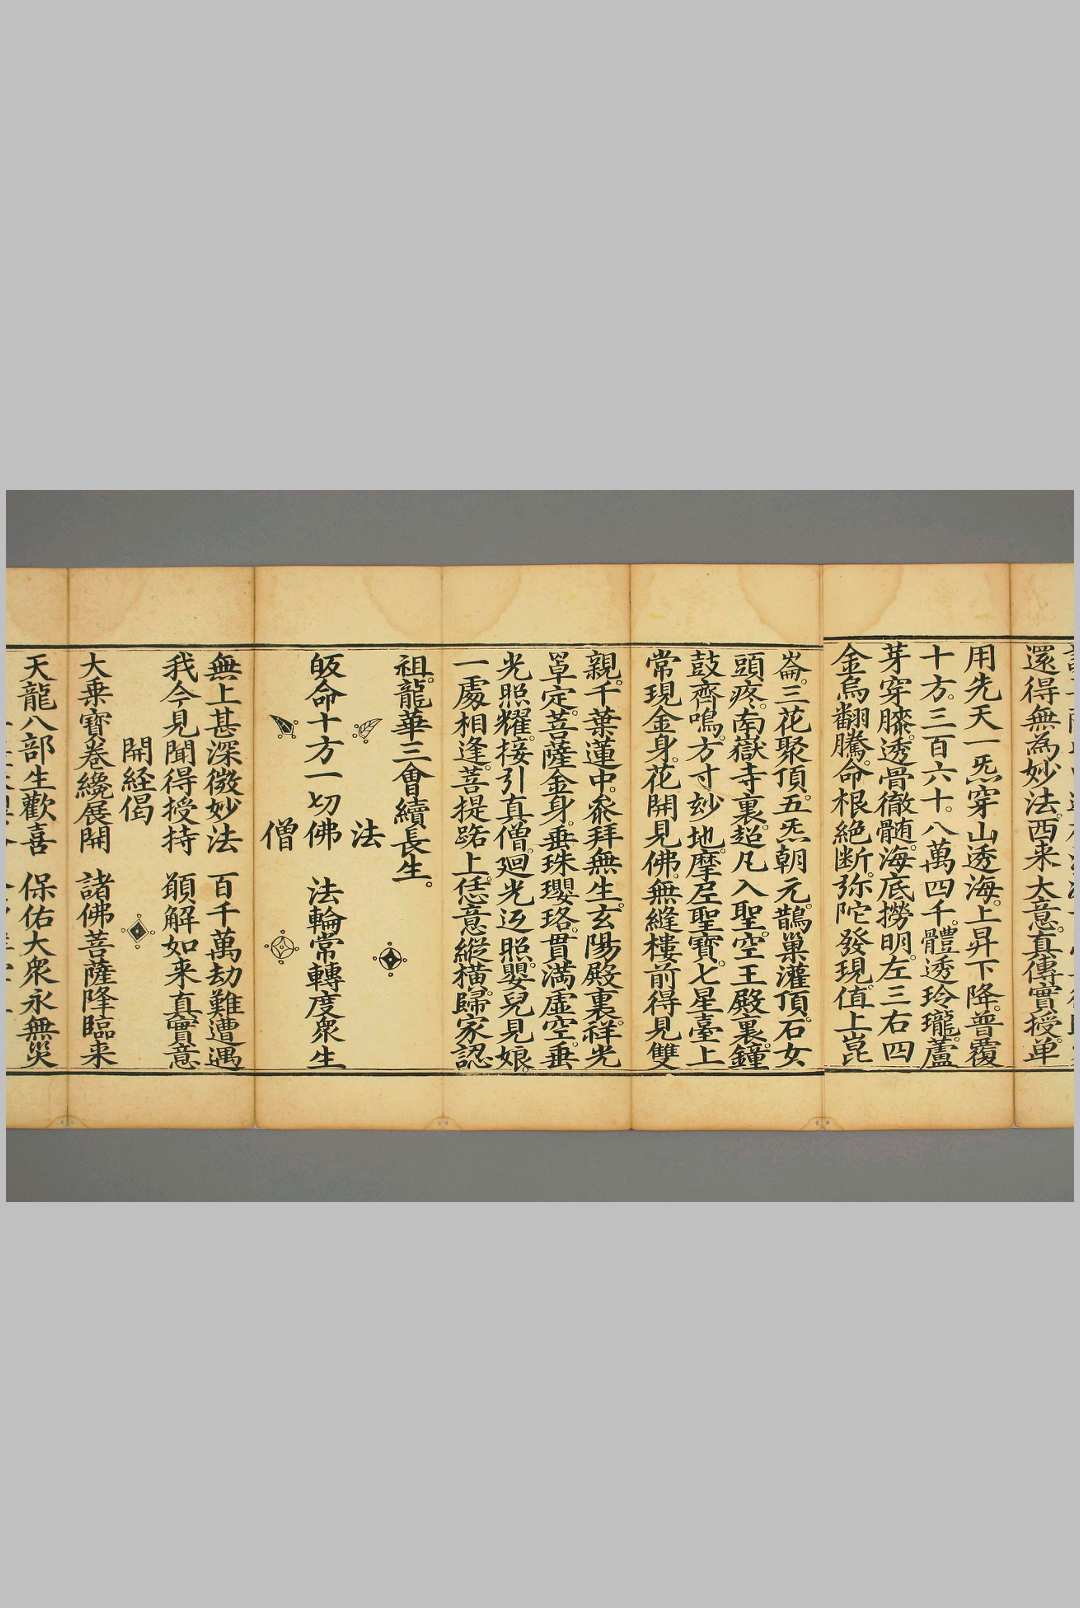 還得無為妙法。西来大意。真傳實授。单
用先天一炁。穿山透海。上昇下降。普覆
十方。三百六十。八萬四千。體透玲瓏。蘆
芽穿膝。透骨徹髄。海底撈明。左三右四
金烏翻騰。命根絶断。弥陀發現。值上崑
崙。三花聚頂。五炁朝元。鵲巢灌頂。石女
頭疼。南嶽寺裏。超凡入聖。空王殿裏。鐘
鼓齊鳴。方寸玅地。摩尼聖寳。七星臺上
常現金身。花開見佛。無縫樓前得見雙
親。千葉蓮中。叅拜無生。玄陽殿裏。祥光
罩定。菩薩金身。垂珠瓔珞。貫满虛空。垂
光照耀。接引真僧。廻光返照。嬰兒見娘
一處相逢。菩提路上。恁意縱橫。歸家認
祖。龍華三會續長生。
法
皈命十方一切佛 法輪常轉度衆生
僧
無上甚深微妙法 百千萬劫難遭遇
我今見聞得授持 願解如来真實意
開経偈
大乗寳卷纔展開 諸佛菩薩降臨来
天龍八部生歡喜 保佑大衆永無災